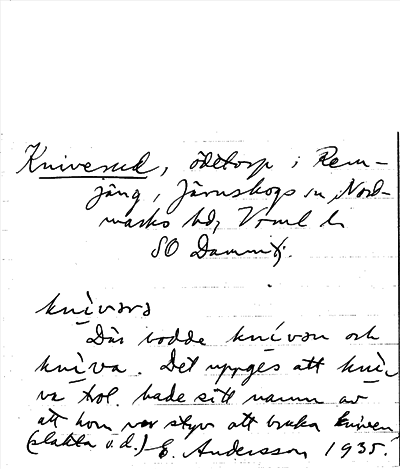 Kniverud, ödetorp i Rem-
jäng, Järnskogs sn, Nord-
marks hd, Vrml l.
SO Dammtj.
knivərə
Där bodde knívən och
kníva. Det uppges att kní-
va trol. hade sitt namn av
att hon var styv att bruka kniven
(slakta o.d.) E. Andersson 1935.